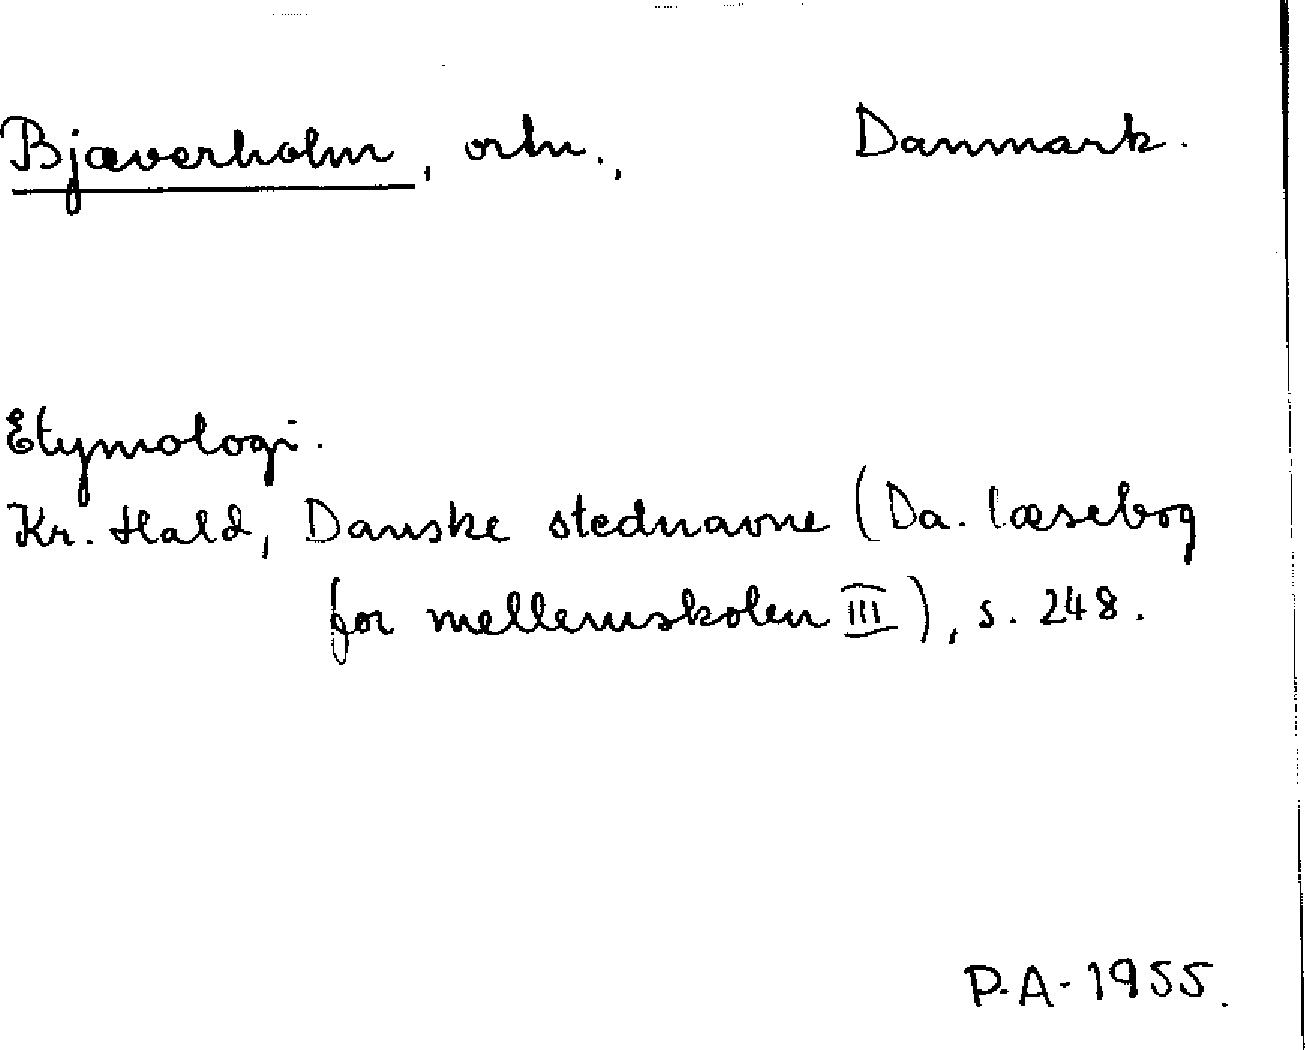 Bjæverholm, ortn., Danmark.
Etymologi.
Kr. Hald, Danske stednavne (Da. læsebog
for mellemskolen III), s. 248.
P.A. 1955.